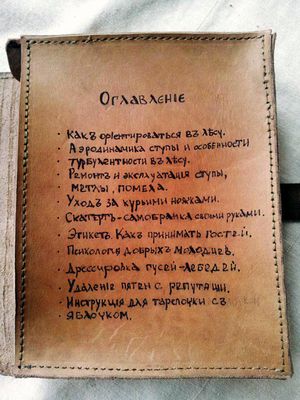 Оглавленіе
· Какъ орiентироваться въ лѣсу.
· Аэродинамика ступы и особенности
· турбулентности въ лѣсу.
· Ремонтъ и эксплуатація ступы,
метлы, помела.
· Уходъ за курьими ножками.
· Скатерть-самобранка своими руками.
· Этикетъ. Какъ принимать гостей.
· Психологія добрыхъ молодцевъ.
· Дрессировка гусей-лебедей.
· Удаленіе пятенъ с репутаціи.
· Инструкція для тарелочки съ
яблочкомъ.